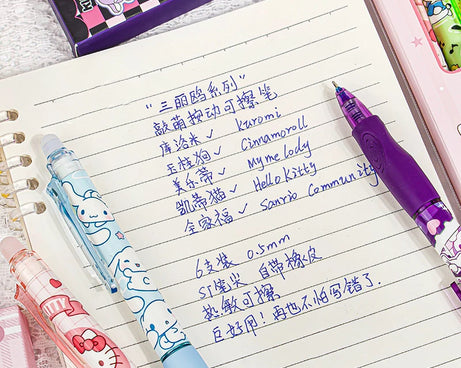 “三丽鸥系列”
超萌按动可擦笔
库洛米✓ Kuromi
玉桂狗✓ Cinnamoroll
美乐蒂✓ Mymelody
凯蒂猫✓ HelloKitty
全家福✓ Sanrio Community
6支装 0.5mm
ST笔尖 自带橡皮
热敏可擦
巨好用！再也不怕写错了.